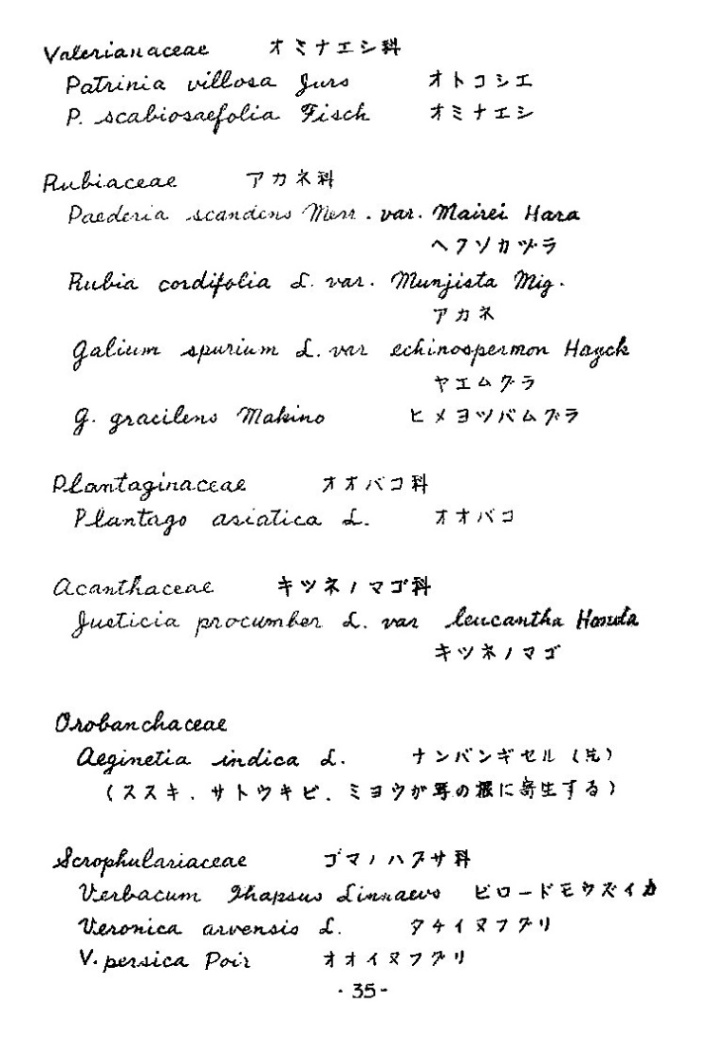 Valerianaceae オミナエシ科
Patrinia villosa Juss オトコシエ
P. scabiosaefolia Fisch オミナエシ
Rubiaceae アカネ科
Paederia scandens Merr. var. Mairei Hara
ヘクソカヅラ
Rubia cordifolia L. var. Munjista Mig.
アカネ
Galium spurium L. var echinospermon Hayck
ヤエムグラ
G. gracilens Makino ヒメヨツバムグラ
Plantaginaceae オオバコ科
Plantago asiatica L. オオバコ
Acanthaceae キツネノマゴ科
Justicia procumber L. var leucantha Honda
キツネノマゴ
Orobanchaceae
Aeginetia indica L. ナンバンギセル
(ススキ、サトウキビ、ミョウが等の根に寄生する)
Scrophulariaceae ゴマノハグサ科
Verbacum Thapsus Linnaeus ビロードモウズイカ
Veronica arvensis L. タチイヌフグリ
V. persica Poir オオイヌフグリ
- 35 -